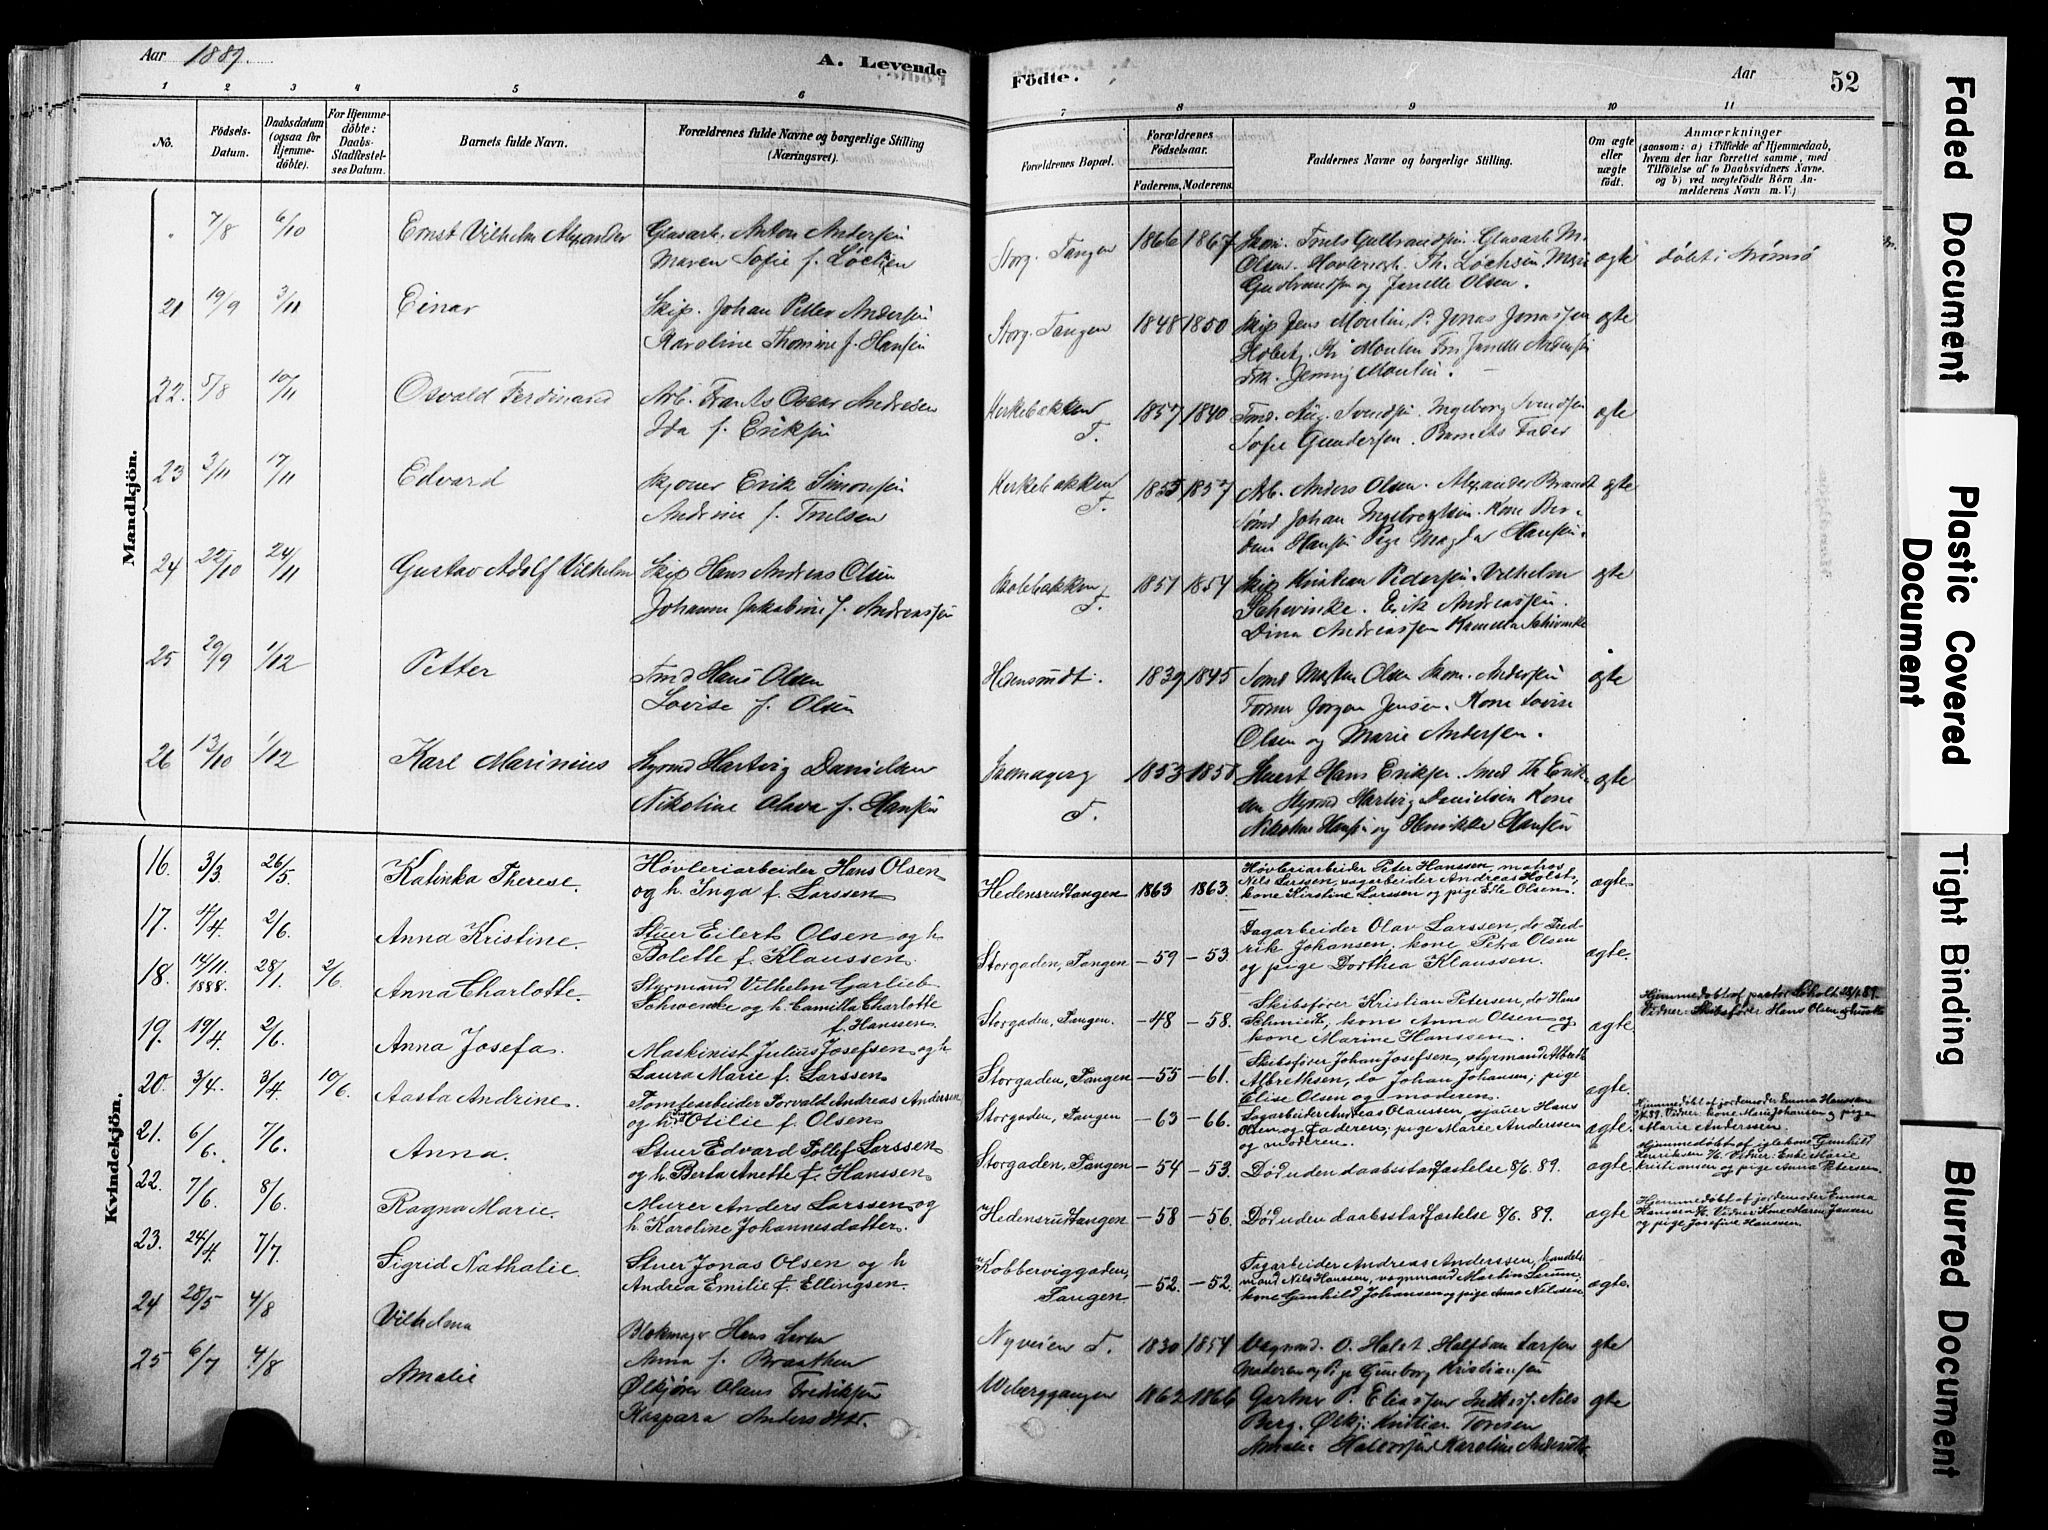 Aar 1889.
A. Levende
Födte.
Aar
52
1 2 3 4 5 6
7 8 9 10 11
No.
Födsels-Datum.
Daabsdatum (ogsaa för Hjemmedöbte).
For Hjemmedöbte: Daabs-Stadfæstelses Datum.
Barnets fulde Navn.
Forældrenes fulde Navne og borgerlige Stilling (Næringsvei).
Forældrenes Bopæl.
Forældrenes Födselsaar.
Faderens. Moderens.
Faddernes Navne og borgerlige Stilling.
Om ægte eller uægte födt.
Anmærkninger
(saasom: a) i Tilfælde af Hjemmedaab,
hvem der har forrettet samme, med
Tilföielse af to Daabsvidners Navne,
og b) ved uægtefödte Börn An-
melderens Navn m. V.)
Mandkjön.
7/8 6/10 Ernst Vilhelm Alexander Glasarb. Anton Andersen
Maren Sofie f. Lochsen
Storg. Tangen 1866 1867 Truls Gulbrandsen. Glasarb. M.
Olsen. Th. Lochsen. Marie
Gudbrandsen og Janette Olsen. ægte döbt i Strømsø
21 19/9 3/11 Einar Skip. Johan Petter Andersen
Karoline Thomine f. Hansen
Storg. Tangen 1848 1850 Skip Jens Moulin, Jonas Jonassen
Janette Andersen
Frk. Jenny Moulin. ægte
22. 5/8 10/11 Osvald Ferdinand Arb. Frants Oscar Andresen
Ida f. Eriksen
Kirkebakken T. 1857 1840 Tmd. Aug. Svendsen. Ingeborg Svendsen
Sofie Gundersen. Barnets Fader ægte
23 3/11 17/11 Edvard Sjouer Erik Simonsen
Andrine f. Truelsen
Kirkebakken T. 1855 1857 Arb. Anders Olsen. Alexander Brandt
Tømd Johan Ingebrogtsen. Kone Ber-
dine Hansen Pige Magda Hansen. ægte
24 22/10 24/11 Gustav Adolf Vilhelm Skip Hans Andreas Olsen
Johanne Jakobine f. Andreassen
Skolebakken T. 1851 1854 Skip Kristian Pedersen. Vilhelm
Schwinke. Erik Andreassen.
Dina Andreassen Kamilla Schwinke ægte
25 29/9 1/12 Petter Tmd Hans Olsen
Lovise f. Olsen
Hedensrudt. 1839 1845 Tømd Morten Olsen Skom. Andersen
Former Jørgen Jensen. Kone Lovise
Olsen og Marie Andersen. ægte
26 13/10 1/12 Karl Marinius Styrmd Hartvig Danielsen
Nikoline Olava f. Hansen
T. 1853 1858 Stuert Hans Eriksen. Smed Th. Erik-
sen Styrmd Hartvig Danielsen Kone
Nikoline Hansen og Henrikke Hansen ægte
Kvindekjön.
16. 3/3. 26/5. Katinka Therese. Høvleriarbeider Hans Olsen
og h. Inga f. Larssen
Hedensrudtangen 1863 1863. Høvleriarbeider Peter Hanssen, matros
Nils Larssen, sagarbeider Andreas Holst,
kone Kirstine Larssen og pige Elle Olsen. ægte.
17. 4/4. 2/6. Anna Kristine. Stuer Eilert Olsen og h
Bolette f. Klaussen.
Storgaden, Tangen -59 -53. Sagarbeider Olav Larssen, do Fred-
rik Johansen, kone Petra Olsen
og pige Dorthea Klaussen. ægte.
18. 14/11. 1888. 28/1. 2/6 Anna Charlotte. Styrmand Vilhelm Garlieb
Schwenke og h. Camilla Charlotte
f. Hanssen
Storgaden, Tangen. -48 -58. Skibsfører Kristian Petersen, do Hans
Schmidt, kone Anna Olsen og
kone Marine Hanssen. ægte
Hjemmedøbt af pastor Scholt 28/1 89.
Vidner: Skibsfører Hans Olsen og hustru
19. 19/4 2/6. Anna Josefa. Maskinist Julius Josefsen og h
Laura Marie f. Larssen
Storgaden, Tangen -55 -61. Skibsfører Johan Josefsen, styrmand Albert
Albrethsen, do Johan Johansen; pige
Elise Olsen og moderen. ægte.
20. 3/4. 3/4 10/6. Aasta Andrine. Tomtearbeider Torvald Andreas Andersen
og h. Otilie f. Olsen
Storgaden, Tangen -63 -66. Sagarbeider Andreas Olaussen, sjauer Hans
Olsen og Faderen; pige Marie Anderssen
og moderen. ægte.
Hjemmedøbt af jordemoder Emma Hanssen
3/4 89. Vidner: kone Marie Johansen og pige
Marie Anderssen.
21. 6/6. 7/6. Anna. Stuer Edvard Tollef Larssen
og h. Berta Anette f. Hanssen
Storgaden, Tangen -54 -53. Død uden daabsstadfæstelse 8/6. 89. ægte
Hjemmedøbt af iglekone Gunhild
Henriksen 7/6. Vidner: Enke Marie
Kristiansen og pige Anna Petersen.
22. 7/6. 8/6. Ragna Marie. Murer Anders Larssen og
h. Karoline Johannesdatter.
Hedensrudtangen -58 -56. Død uden daabsstadfæstelse 8/6. 89. ægte
Hjemmedøbt af jordemoder Emma
Hanssen 8/6. Vidner kone Maren Jansen
og pige Josefine Hanssen.
23. 24/4 7/7. Sigrid Nathalie. Stuer Jonas Olsen og h
Andrea Emilie f. Ellingsen.
Kobberviggaden, Tangen -52. -52. Sagarbeider Andreas Anderssen, handels-
mand Nils Hanssen, vognmand Martin Sørum,
kone Gunhild Johansen og pige Anna Nilssen. ægte.
24 28/5 4/8 Vilhelma Blokmager Hans Larsen
Anna f. Braathen
Nyveien T. 1830 1854 Vognmd. O. Holst. Halfdan Larsen
Moderen og Pige Guneborg Kristiansen ægte
25 6/7 4/8 Amalie Ølkjører Olaus Fredriksen
Kaspara Andersdtr.
Webergganggen 1862 1866 Gartner P. Eliassen Nils
Berg. Ølkj. Kristian Toresen
Amalie Halvorsen Karoline Andersdtr. ægte
Faded Document
Plastic Covered Document
Tight Binding
Blurred Document